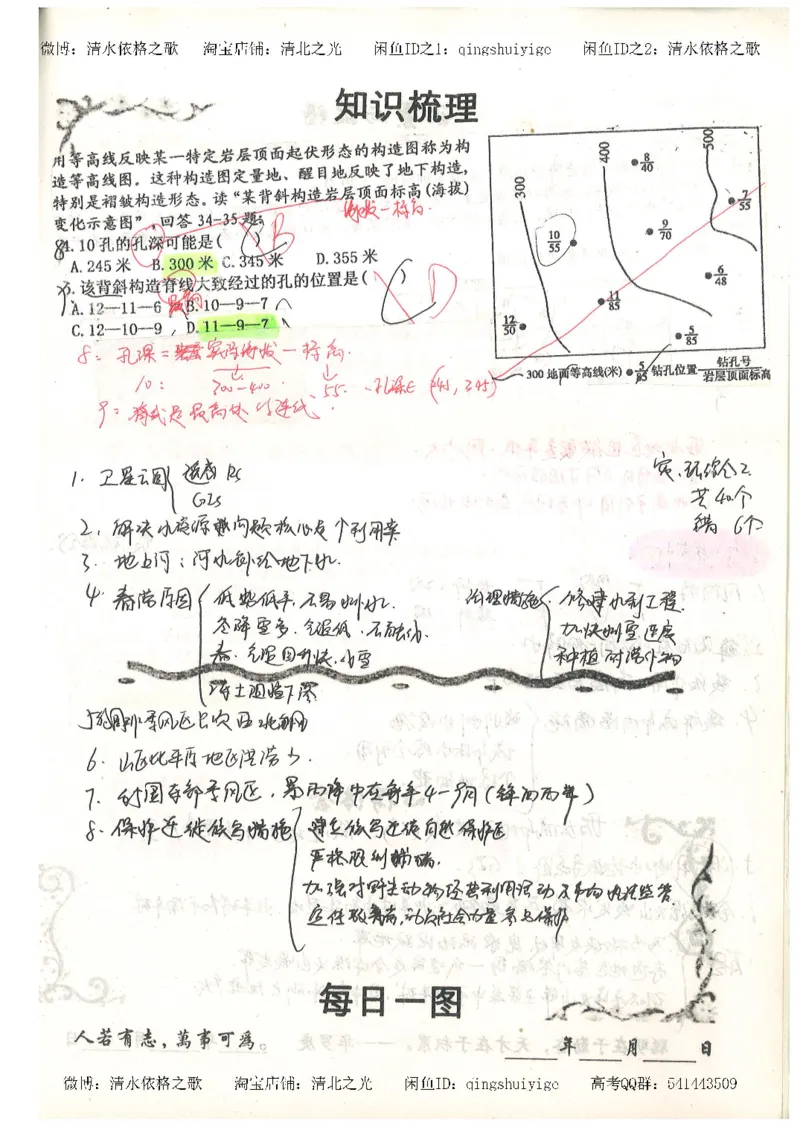 微博：清水依格之歌 淘宝店铺：清北之光 闲鱼ID之1：qingshuiyige 闲鱼ID之2：清水依格之歌
知识梳理
用等高线反映某一特定岩层顶面起伏形态的构造图称为构
造等高线图。这种构造图定量地、醒目地反映了地下构造，
特别是褶皱构造形态。读“某背斜构造岩层顶面标高(海拔)
变化示意图”，回答34-35题。
海拔一标高
84. 10孔的孔深可能是( ) B
A.245米 B.300米 C.345米 D.355米
9. 该背斜构造脊线大致经过的孔的位置是( ) D
A.12—11—6 B.10—9—7
C.12—10—9 D.11—9—7
300 400 500
8/40
7/55
9/70
10/55
6/48
11/85
12/50
5/85
300 地面等高线(米) 5/85 钻孔位置 钻孔号/岩层顶面标高
8：孔深=实际海拔一标高.
10： 300-400 55. 孔深∈(245, 345)
9：脊线是最高处的连线.
1. 卫星云图 遥感RS
GIS
2. 解决水资源 问题核心是个利用率
3. 地上河：河水补给地下水.
4. 春涝原因 低 低平，不易排水.
冬降雪多，气温低，不融化.
春，气温回升快，化雪
冻土 下渗
治理措施 修建水利工程.
加快 雪速度
种植耐涝作物
实、环综合2
共40个
错 6个
6. 山区比平原地区洪涝少.
7. 我国东部季风区，暴雨集中在每年4—9月(锋面雨带)
8. 保护迁徙候鸟措施 建立候鸟迁徙自然保护区
严格限制捕猎.
加强对野生动物经营利用活动 监管
宣传教育，动员社会力量参与保护
每日一图
人若有志，萬事可為。
年 月 日
微博：清水依格之歌 淘宝店铺：清北之光 闲鱼ID：qingshuiyige 高考QQ群：541443509